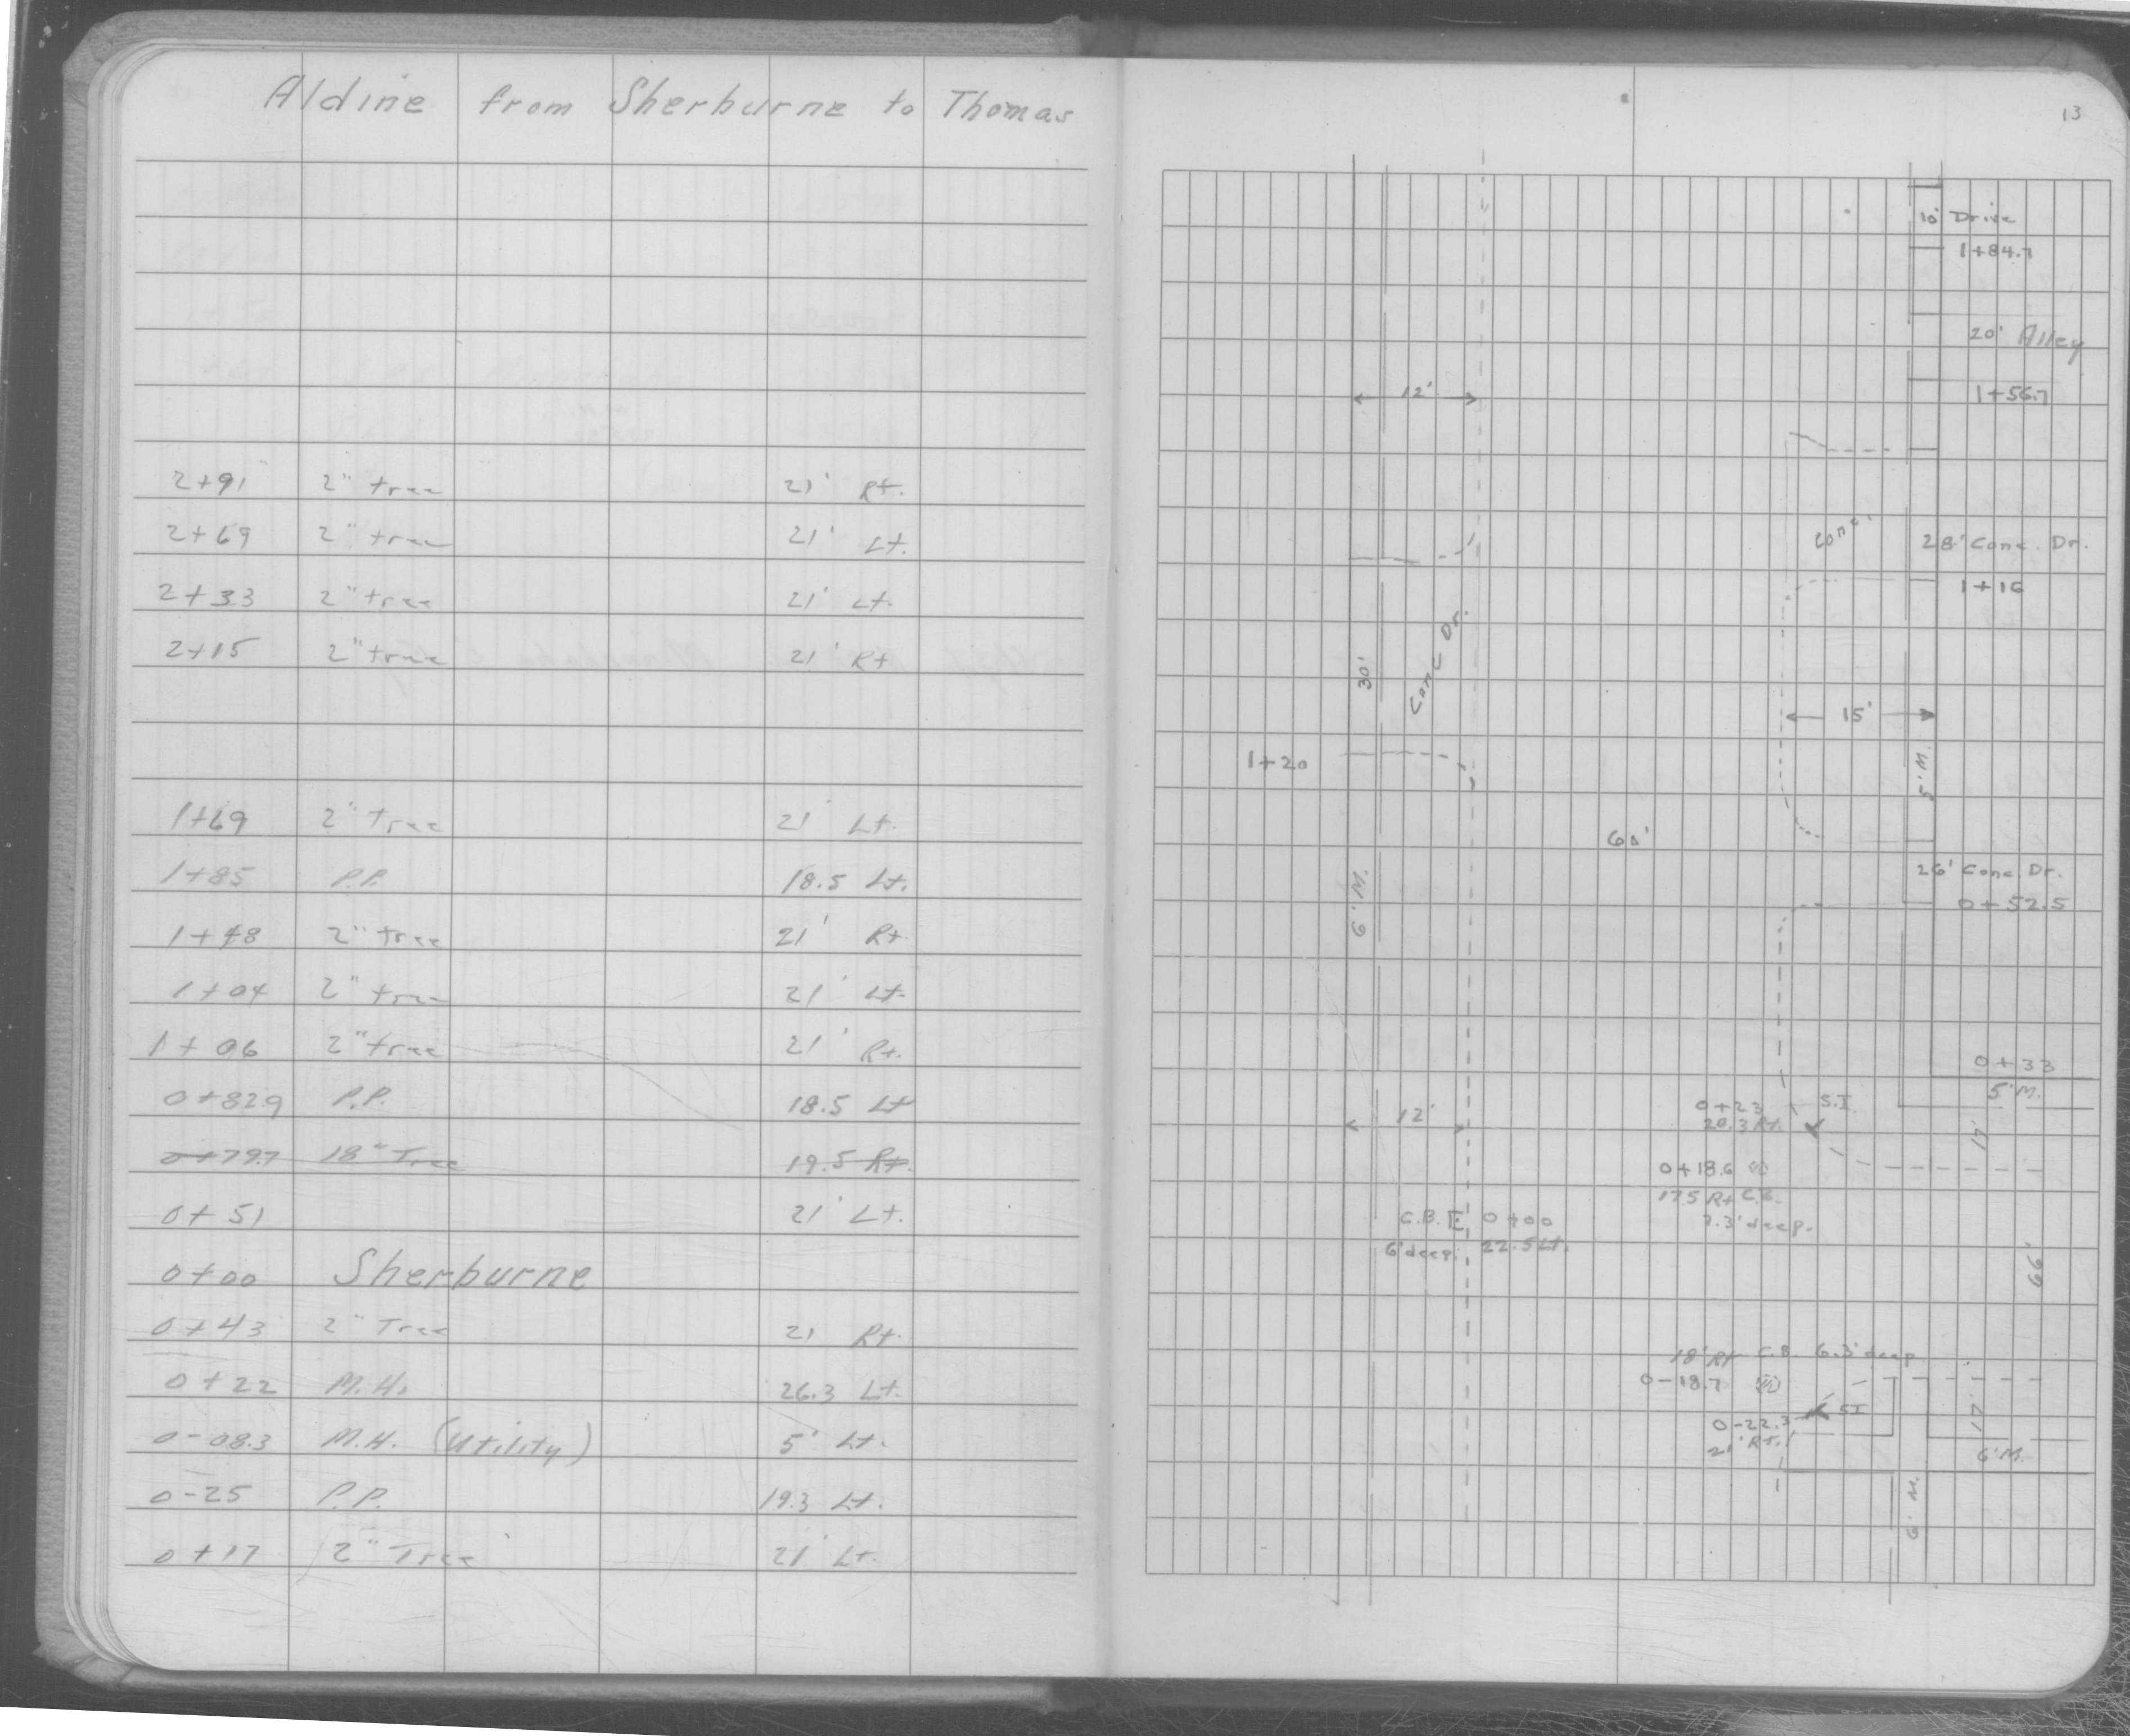 Aldine from Sherburne to Thomas
2+91 2" tree 21' Rt.
2+69 2" tree 21' Lt.
2+33 2" tree 21' Lt.
2+15 2" tree 21' Rt
1+69 2" tree 21' Lt.
1+85 P.P. 18.5 Lt.
1+48 2" tree 21' Rt.
1+04 2" tree 21' Lt.
1+06 2" tree 21' Rt.
0+82.9 P.P. 18.5 Lt
0+79.7 18" Tree 19.5 Rt.
0+51 21' Lt.
0+00 Sherburne
0+43 2" Tree 21 Rt.
0+22 M.H. 26.3 Lt.
0-08.3 M.H. (Utility) 5' Lt.
0-25 P.P. 19.3 Lt.
0+17 2" Tree 21' Lt.
13
10' Drive
1+84.7
20' Alley
12'
1+56.7
Conc.
28' Conc. Dr.
1+16
Conc Dr.
30'
15'
5' M.
1+20
60'
26' Conc. Dr.
6' M.
0+52.5
0+33
5' M.
12'
0+23 S.I.
20.3 Rt.
17'
0+18.6
17.5 Rt C.B.
7.3' deep.
C.B. 0+00
6' deep. 22.5 Lt.
66'
18' Rt C.B. 6.3' deep
0-18.7
0-22.3 S.I
21' Rt.
17'
6' M.
6' M.